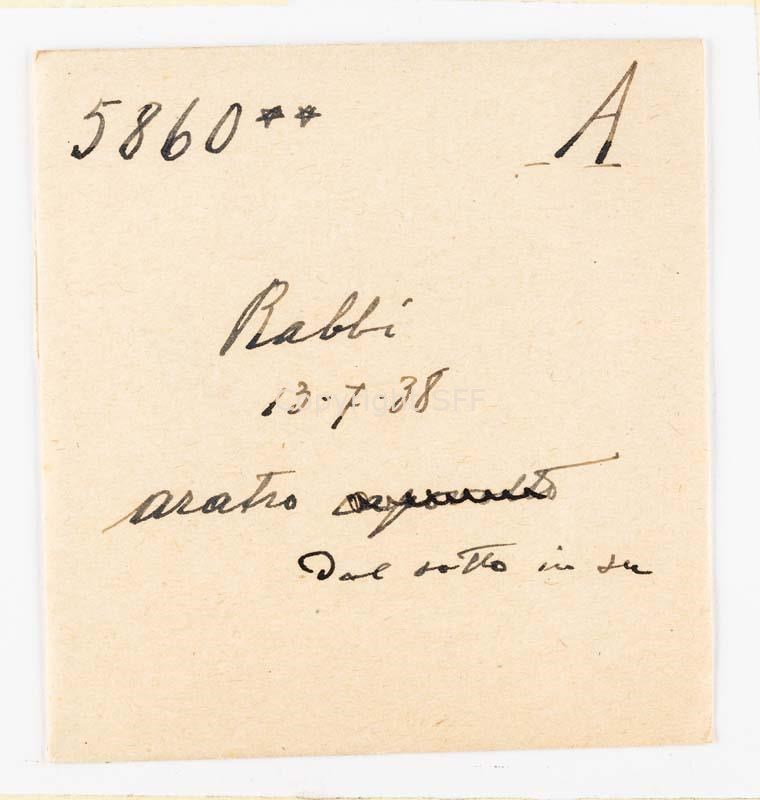 5860** A
Rabbi
13·7·38
Copyright SFF
aratro
Dal sotto in su